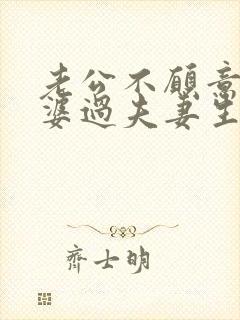 老公不愿意
婆過夫妻生
齊士明